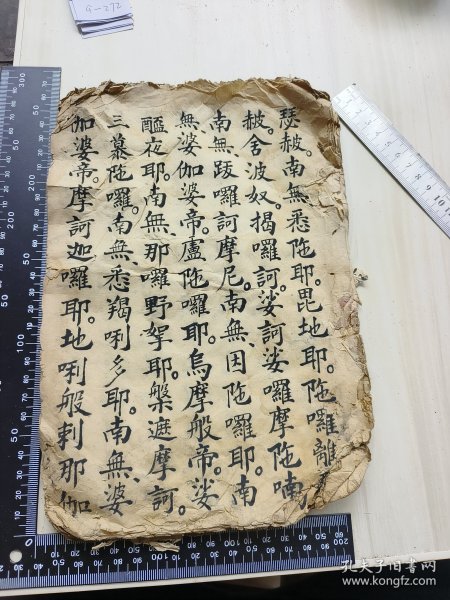 瑟赧。南無悉陁耶。毘地耶。陁囉離
赧。舍波奴。揭囉訶。娑訶娑囉摩陁喃
南無、跋囉訶摩尼。南無、因陁囉耶。南
無、婆伽婆帝。盧陁囉耶。烏摩般帝。娑
醯夜耶。南無、那囉野拏耶。槃遮摩訶。
三慕陁囉。南無、悉羯唎多耶。南無、婆
伽婆帝。摩訶迦囉耶。地唎般剌那伽
孔夫子旧书网
www.kongfz.com